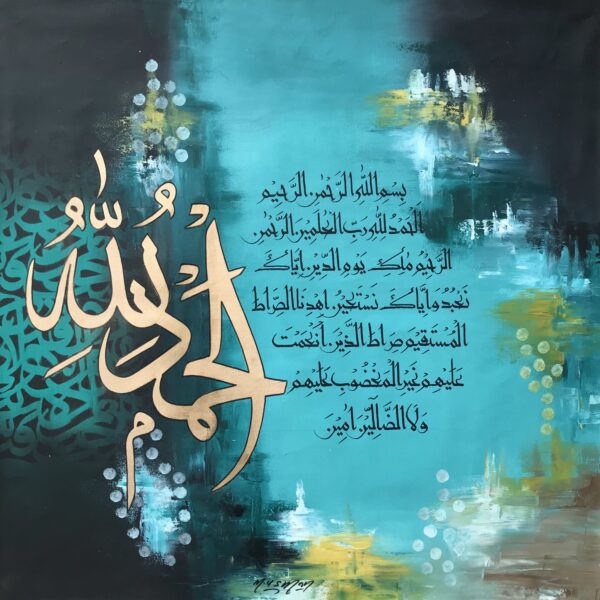 الحمد لله
بسم الله الرحمن الرحيم
الحمد لله رب العلمين الرحمن
الرحيم ملك يوم الدين اياك
نعبد و اياك نستعين اهدنا الصراط
المستقيم صراط الذين أنعمت
عليهم غير المغضوب عليهم
ولا الضالين امين